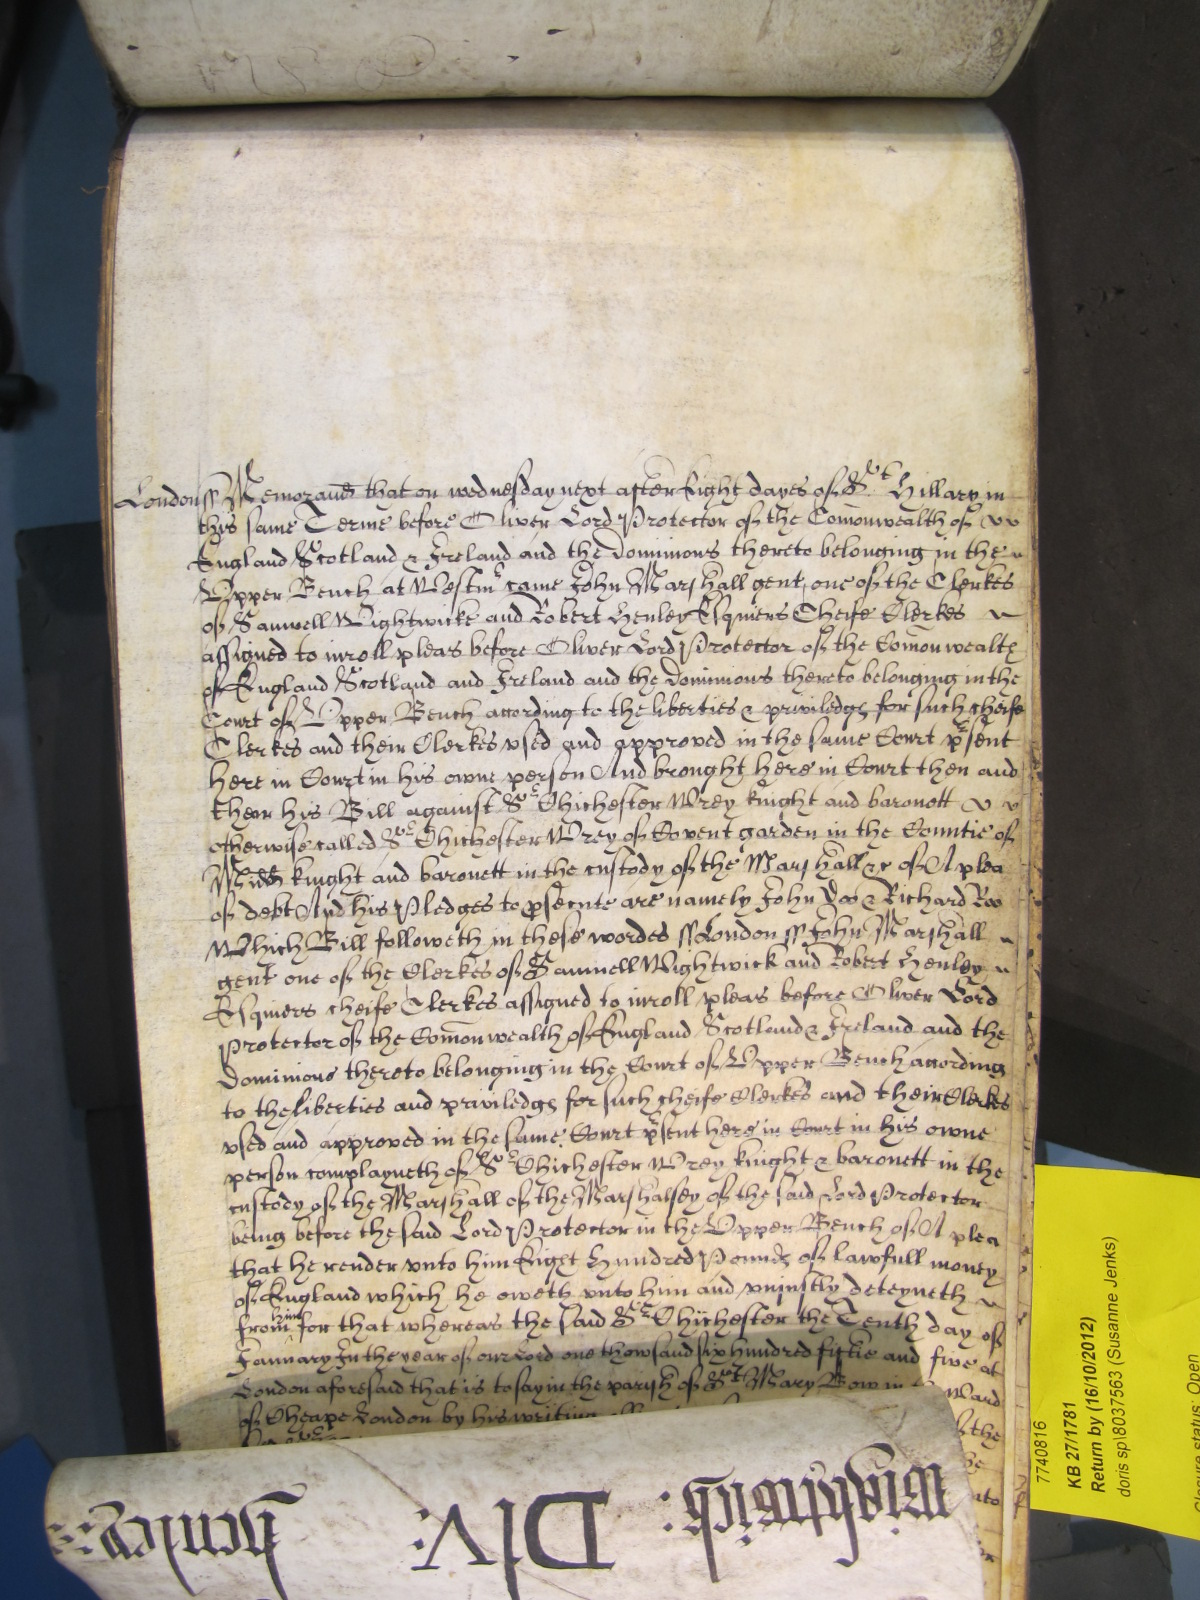 London ss Memorand that on wednesday next after Eight dayes of St Hillary in
this same Terme before Oliver Lord Protector of the Comonwealth of
England Scotland & Ireland and the dominions thereto belonging in the
Upper Bench at Westmr came John Marshall gent one of the Clerkes
of Samuell Wightwicke and Robert Henley Esquiers Cheife Clerkes
assigned to inroll pleas before Oliver Lord Protector of the Comonwealth
of England Scotland and Ireland and the dominions thereto belonging in the
Court of Upper Bench according to the liberties & priviledgs for such cheife
Clerkes and their Clerkes used and approved in the same Court psent
here in Court in his owne person And brought here in Court then and
their his Bill against Sr Chichester Wrey knight and baronett
otherwise called Sr Chichester Wrey of Covent garden in the Countie of
Midd knight and baronett in the custody of the Marshall &c of A plea
of debt And his Pledges to psecute are namely John Doo & Richard Roo
Which Bill followeth in these wordes ss London ss John Marshall
gent one of the Clerkes of Samuell Wightwick and Robert Henley
Esquiers cheife Clerkes assigned to inroll pleas before Oliver Lord
Protector of the Comonwealth of England Scotland & Ireland and the
dominions thereto belonging in the Court of Upper Bench according
to the liberties and priviledgs for such cheife Clerkes and their Clerkes
used and approved in the same Court psent here in Court in his owne
person complayneth of Sr Chichester Wrey knight & baronett in the
custody of the Marshall of the Marshalsey of the said Lord Protector
being before the said Lord Protector in the Upper Bench of A plea
that he render unto him Eight Hundred Pounds of lawfull money
of England which he oweth unto him and uniustly deteyneth
from him for that whereas the said Sr Chichester the Tenth day of
January In the year of our Lord one thowsand six hundred fiftie and five at
London aforesaid that is to say in the parish of St Mary Bow in Ward
of Cheape London by his writing
the
Wightwich: DIV: Henley:
7740816
KB 27/1781
Return by (16/10/2012)
doris sp\8037563 (Susanne Jenks)
Closure status: Open